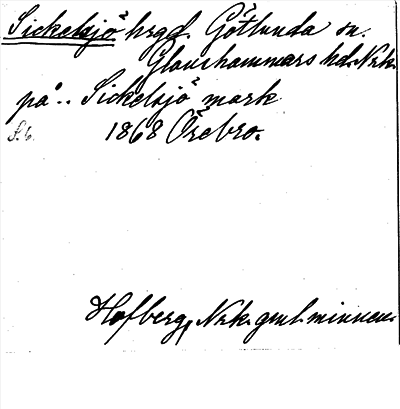 Sickelsjö hrgd. Götlunda sn.
Glanshammars hd. Nrk.
på.. Sickelsjö mark
S. 6. 1868 Örebro.
Hofberg, Nrk. gml. minnen.